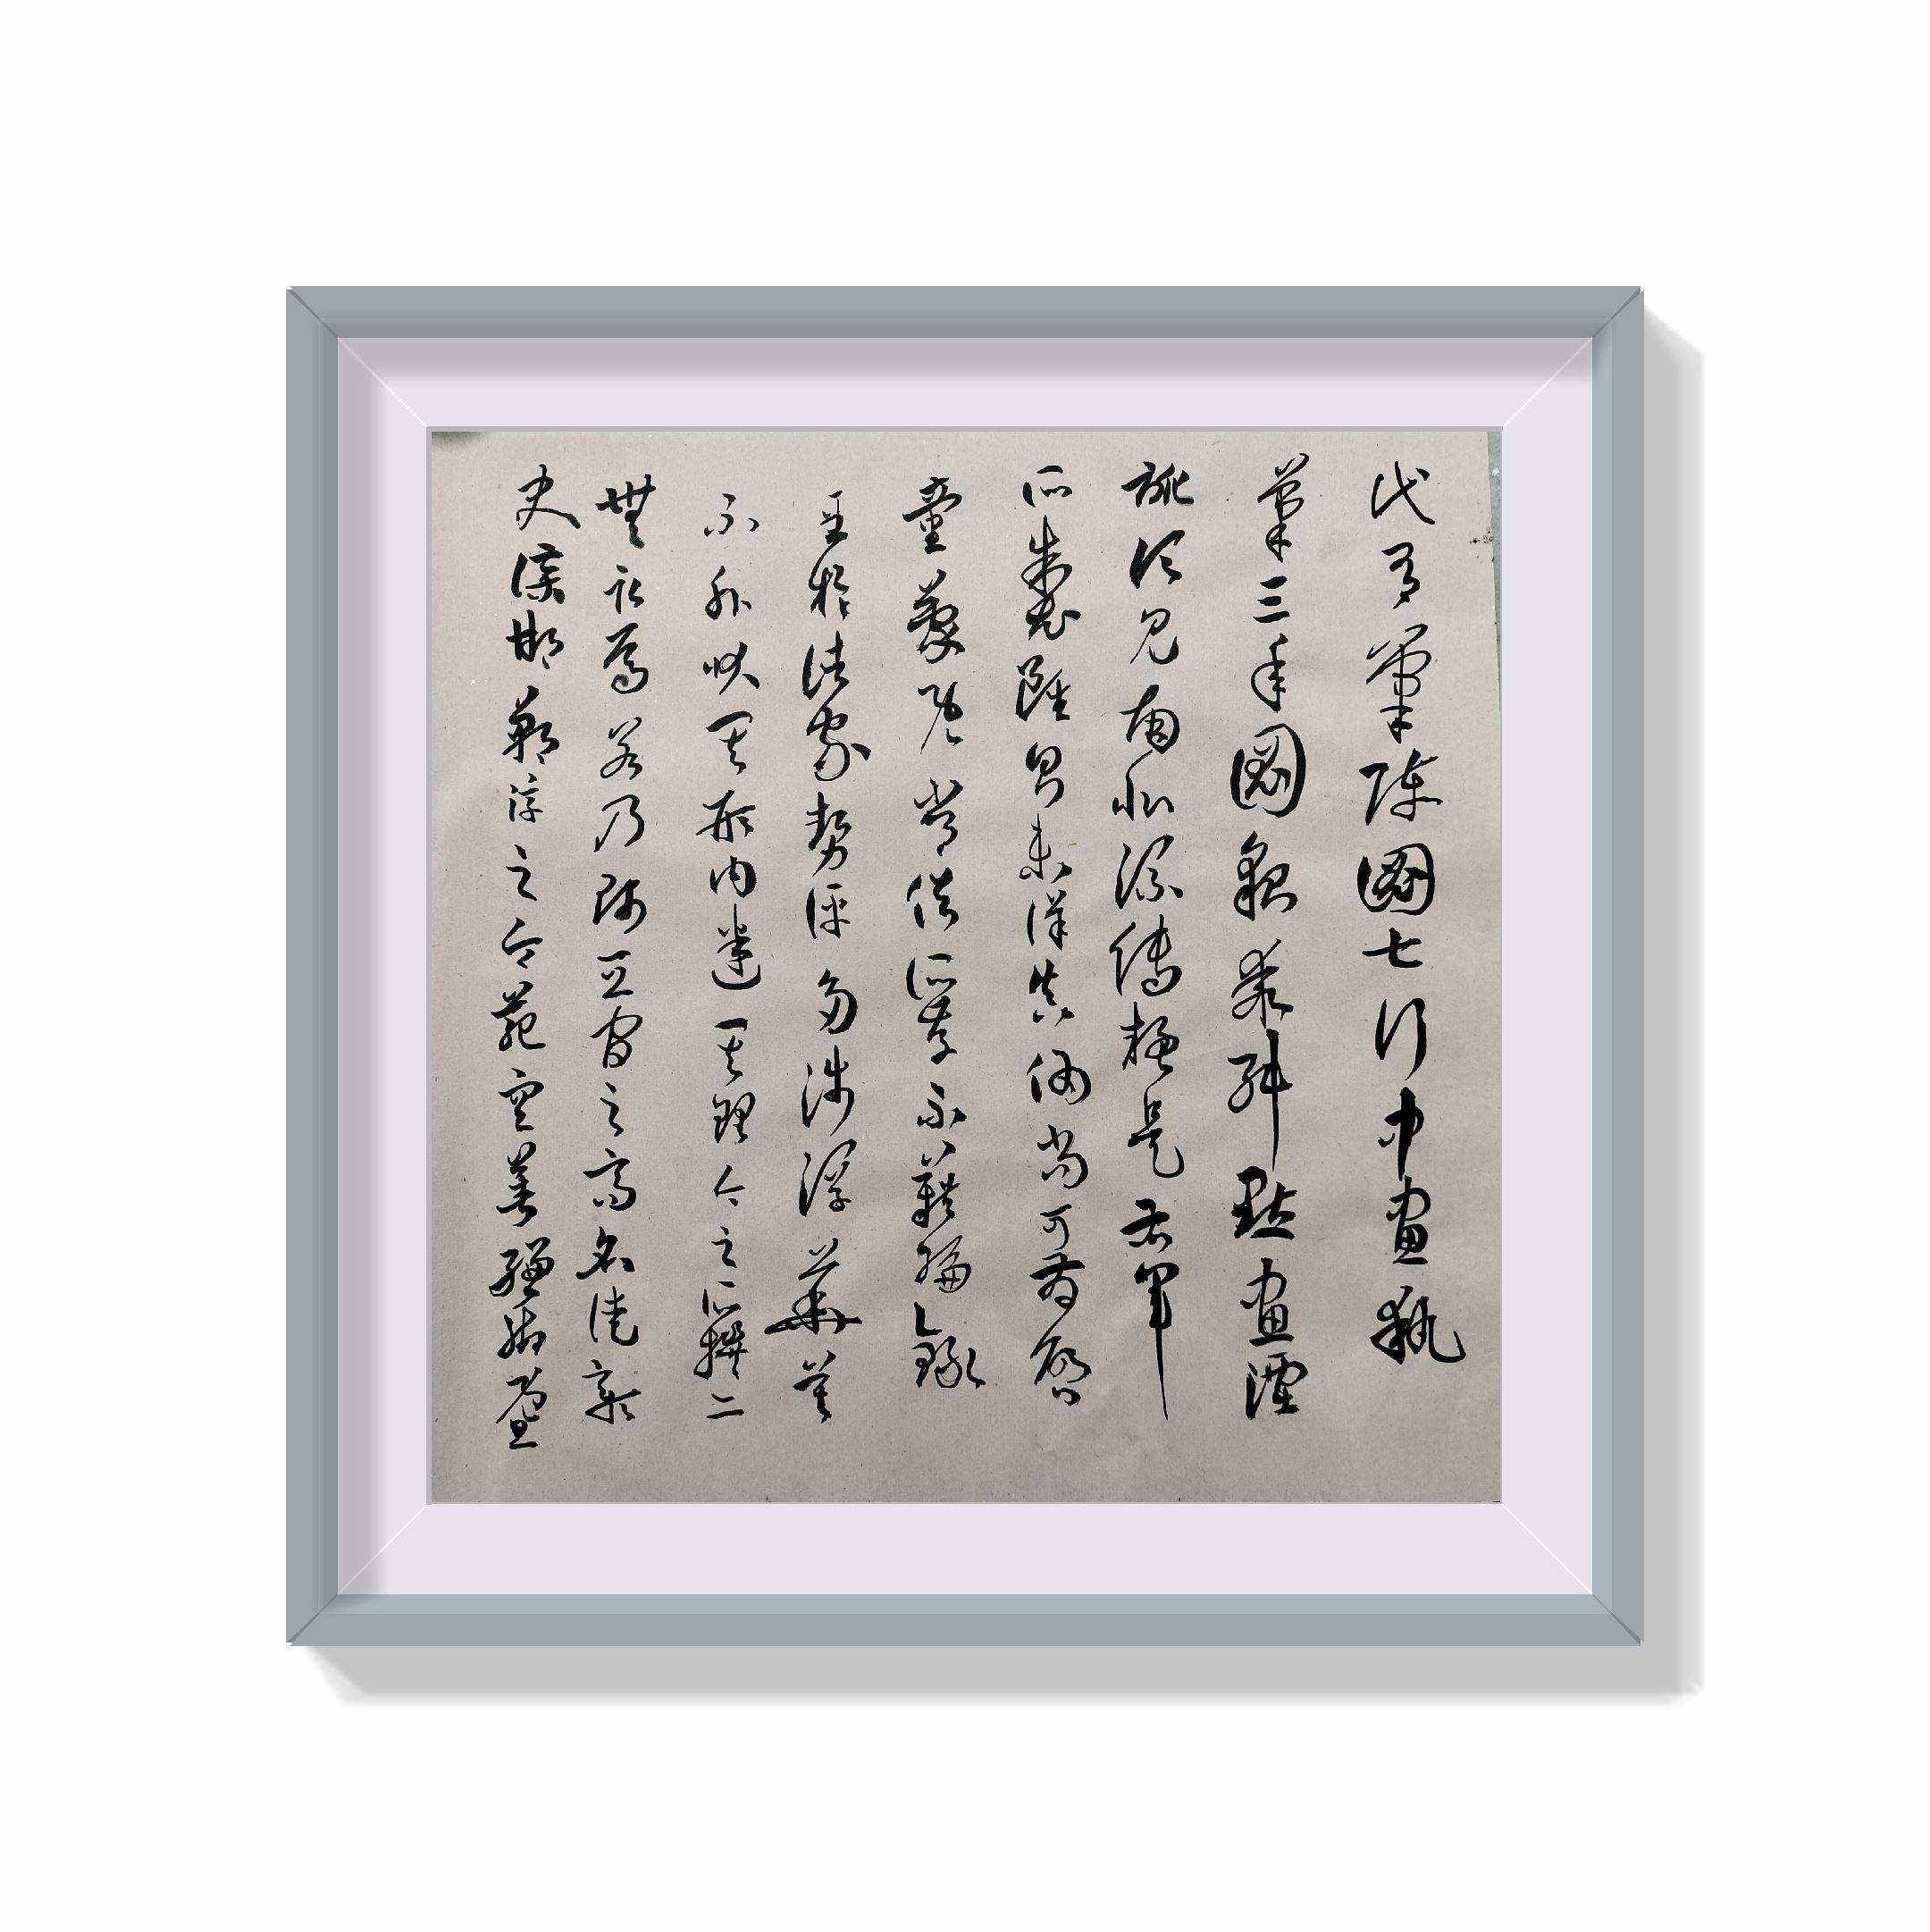 代有筆陣圖七行中畫執
筆三手圖貌乖舛點畫湮
訛頃見南北流傳疑是右軍
所製雖則未詳真偽尚可發啓
童蒙既常俗所存不藉編錄
至於諸家勢評多涉浮華莫
不外狀其形內迷其理今之所撰亦
無取焉若乃師宜官之高名徒彰
史牒邯鄲淳之令範空著縑緗暨